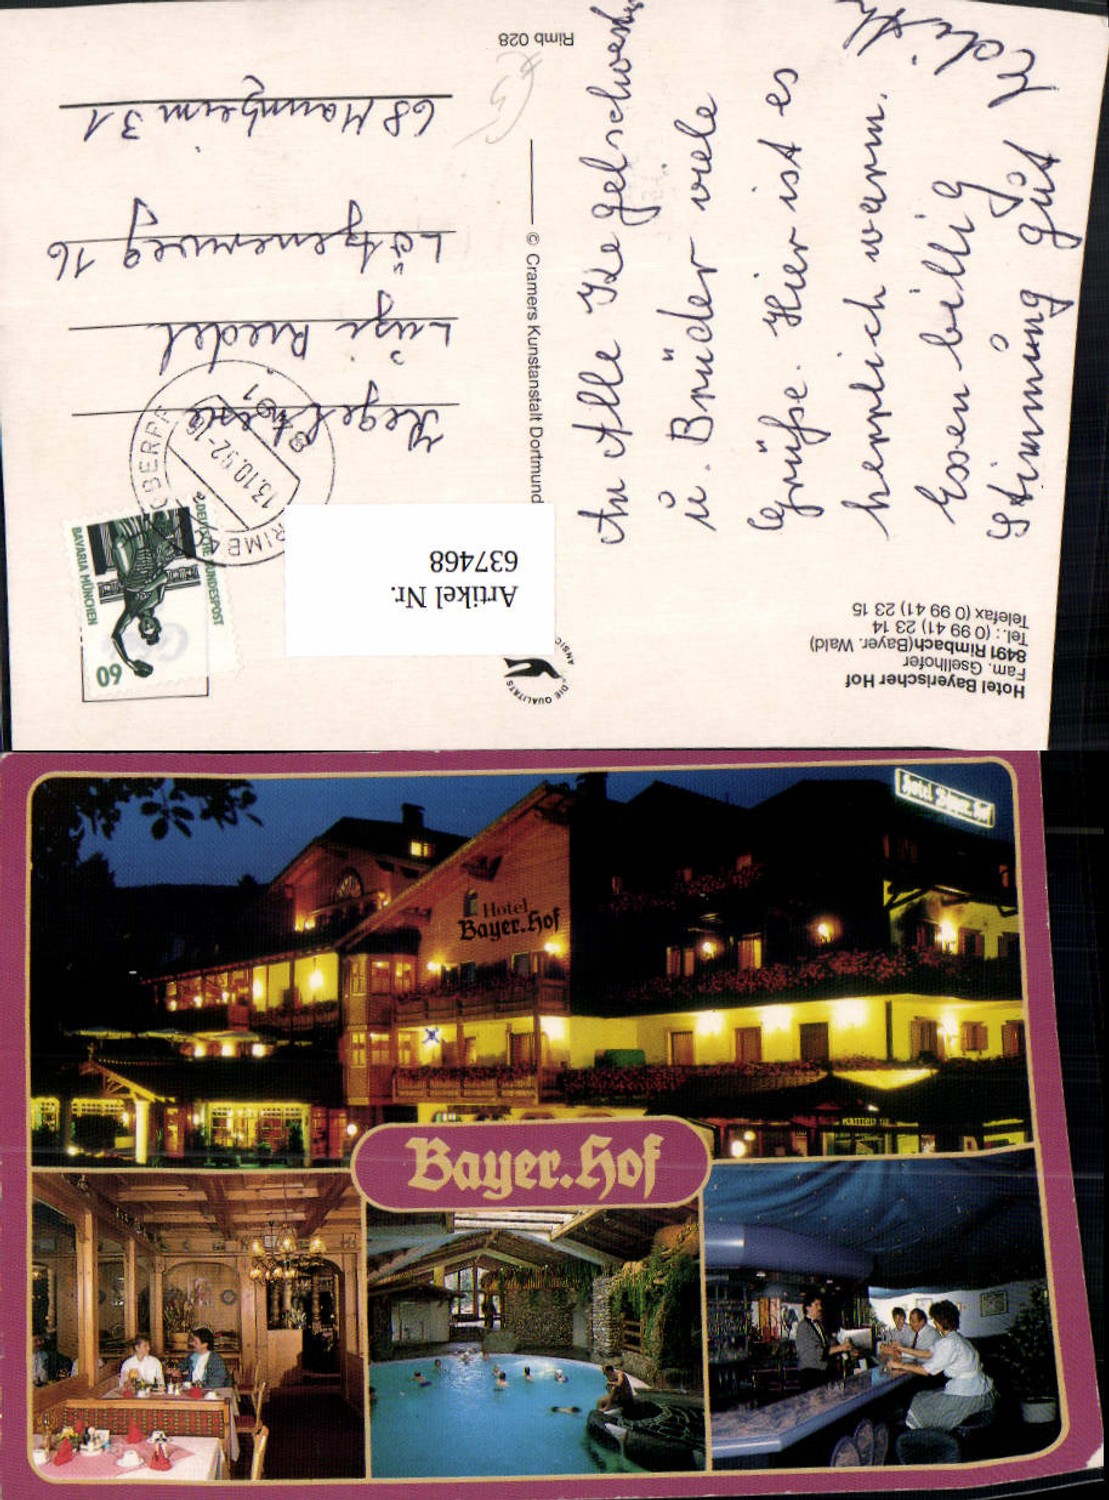 Hotel Bayerischer Hof
Fam. Gsellhofer
8491 Rimbach (Bayer. Wald)
Tel.: (0 99 41) 23 14
Telefax (0 99 41) 23 15
An Alle Kegelschwestern
u. Brüder viele
Grüße. Hier ist es
herrlich warm.
Essen billig
Stimmung gut
© Cramers Kunstanstalt Dortmund
Rimb 028
DIE QUALITÄTS
ANSIC
Artikel Nr.
637468
60
DEUTSCHE BUNDESPOST
BAVARIA MÜNCHEN
13.10.92-16
8491
Luzi Riedel
Lötzenerweg 16
68 Mannheim 31
Hotel Bayer. Hof
Hotel
Bayer. Hof
Bayer. Hof